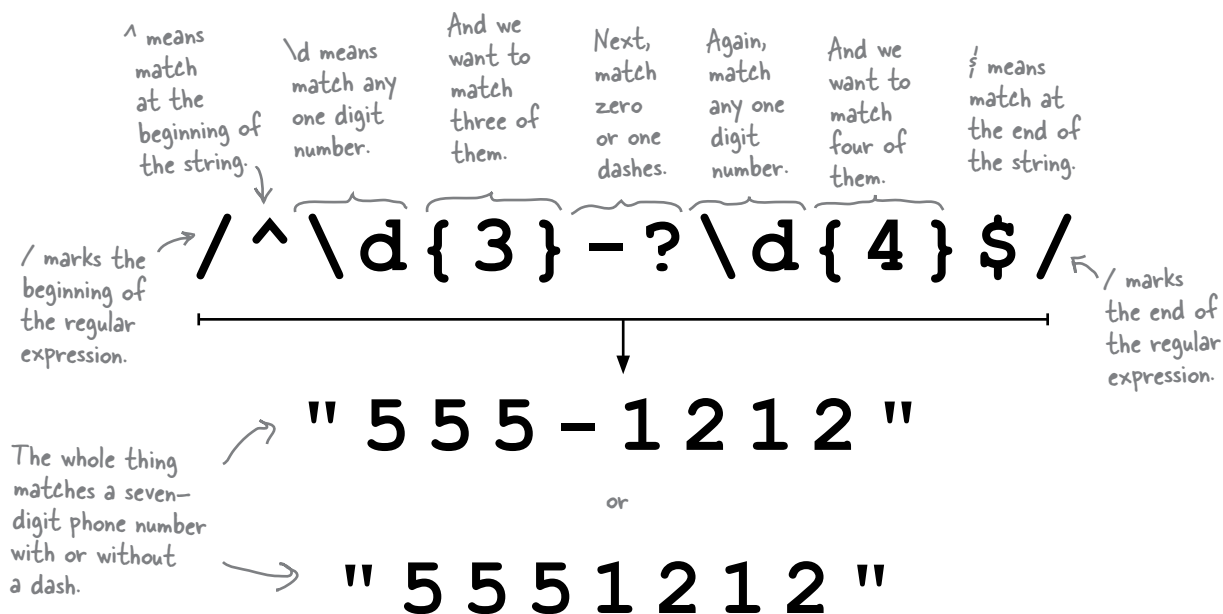 ^ means
match
at the
beginning of
the string.
\d means
match any
one digit
number.
And we
want to
match
three of
them.
Next,
match
zero
or one
dashes.
Again,
match
any one
digit
number.
And we
want to
match
four of
them.
$ means
match at
the end of
the string.
/^\d{3}-?\d{4}$/
/ marks the
beginning of
the regular
expression.
/ marks
the end of
the regular
expression.
"555-1212"
The whole thing
matches a seven-
digit phone number
with or without
a dash.
or
"5551212"